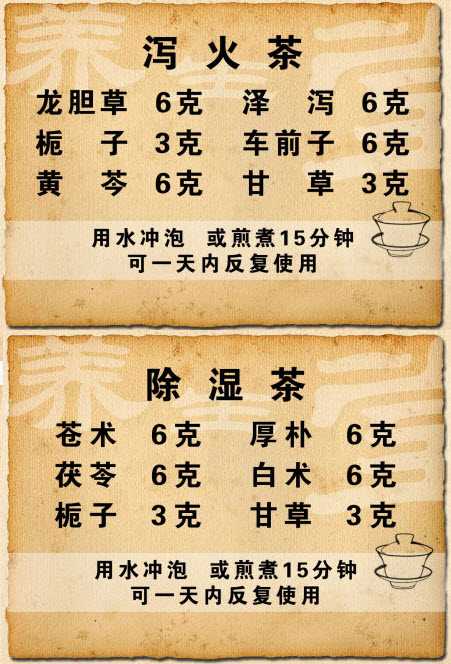 泻火茶
龙胆草 6克 泽泻 6克
栀子 3克 车前子 6克
黄芩 6克 甘草 3克
用水冲泡 或煎煮15分钟
可一天内反复使用
除湿茶
苍术 6克 厚朴 6克
茯苓 6克 白术 6克
栀子 3克 甘草 3克
用水冲泡 或煎煮15分钟
可一天内反复使用